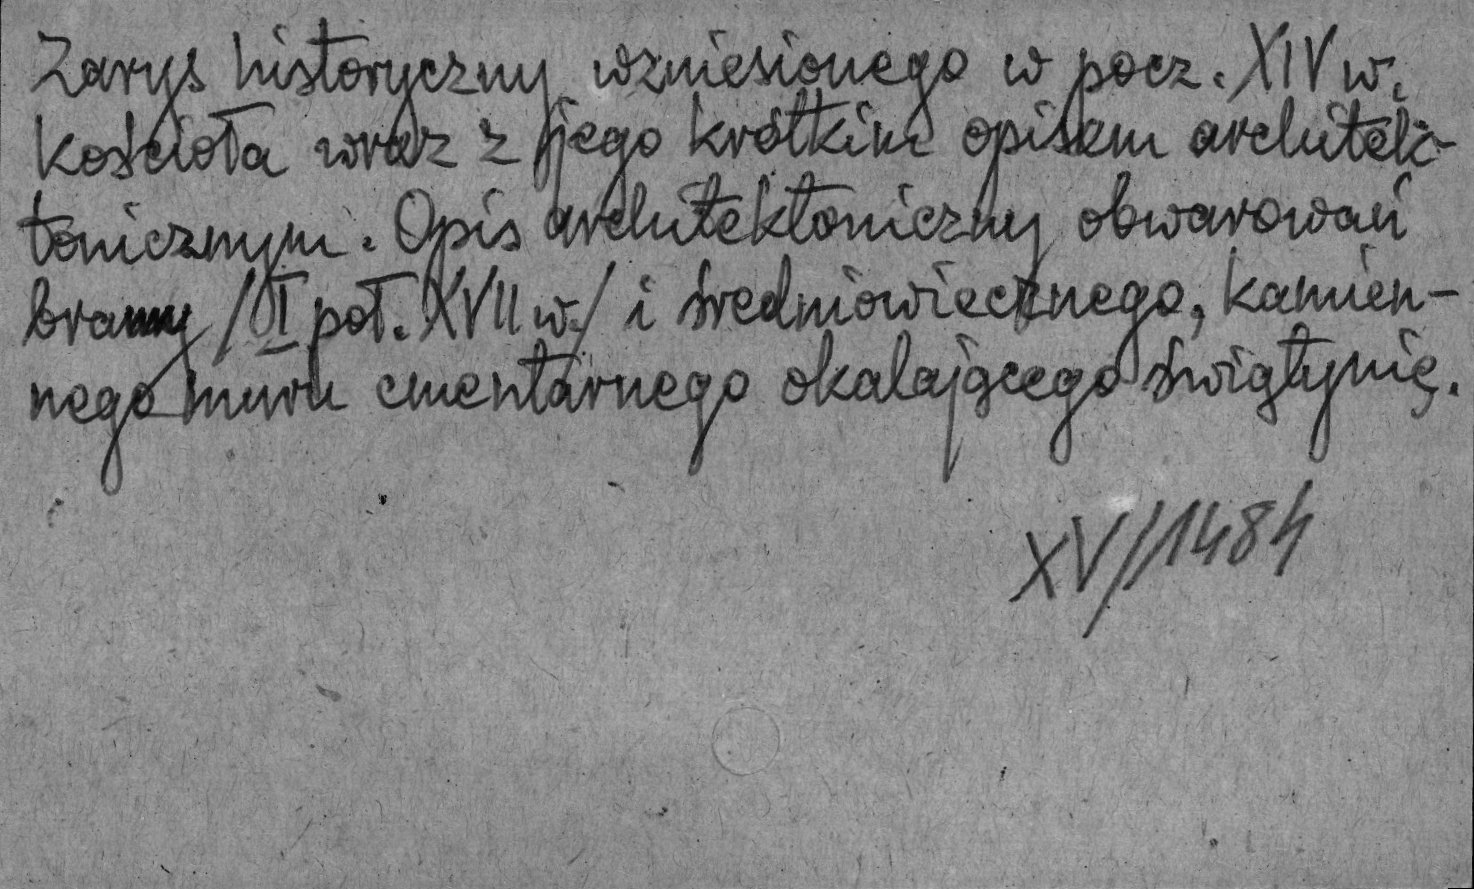 Zarys historyczny wzniesionego w pocz. XIV w.
kościoła wraz z jego krótkim opisem architek-
tonicznym. Opis architektoniczny obwarowań
bramy /I poł. XVII w./ i średniowiecznego, kamien-
nego muru cmentarnego okalającego świątynię.
XV/1484